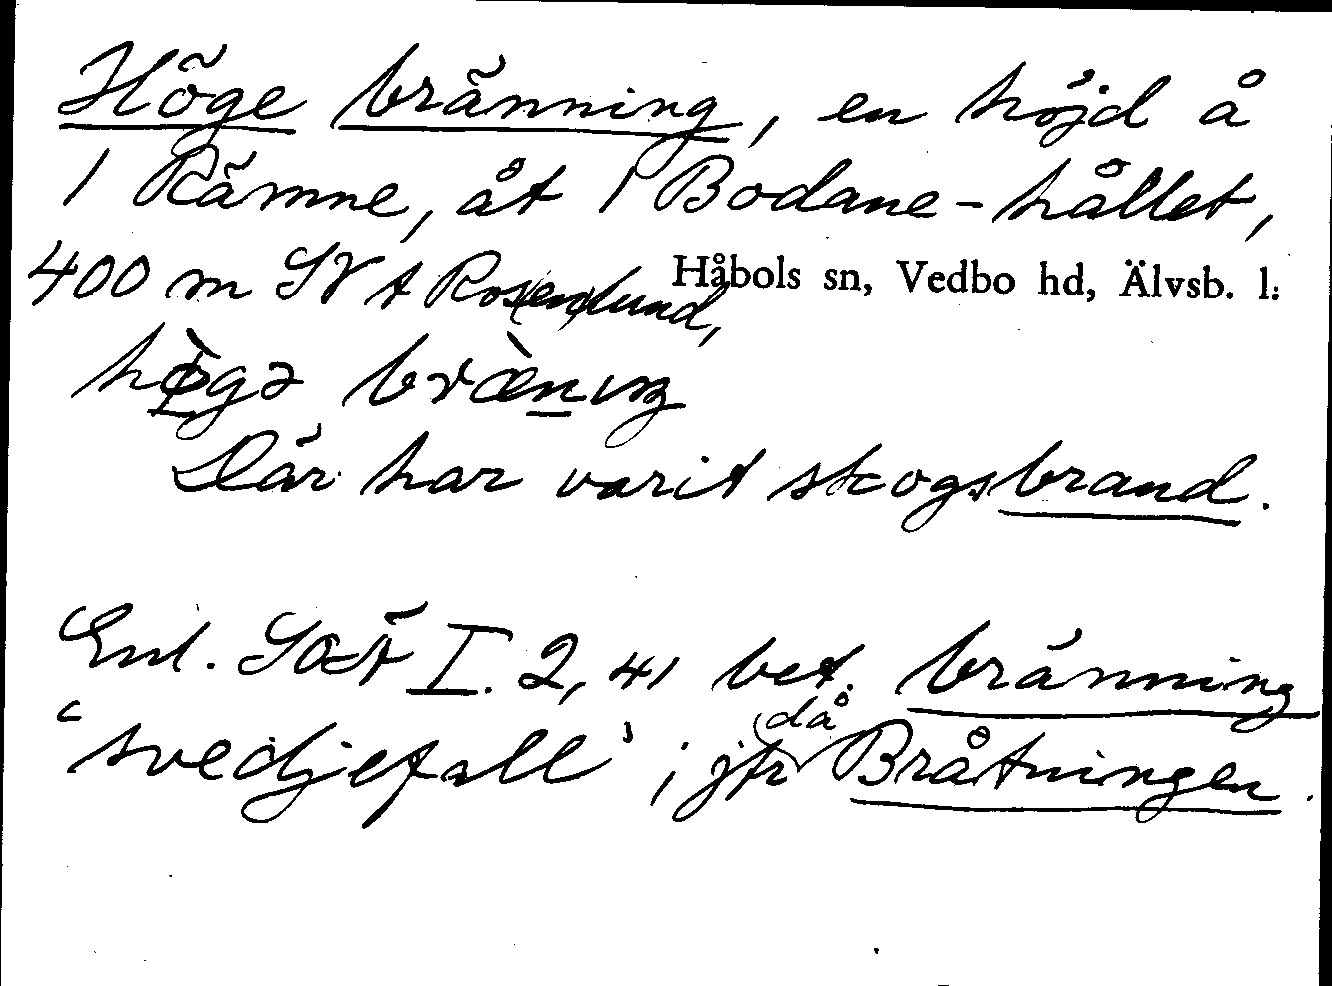 Höge bränning, en höjd å
1 Rämne, åt 1 Bodane-hållet,
400 m SV 1 Ros(en)lund,
Håbols sn, Vedbo hd, Älvsb. l:
hø̀gə bræ̀nıŋ
Där har varit skogsbrand.
Enl. SOÄ I. 2, 41 bet. bränning
'svedjefall'; jfr då Bråtningen.